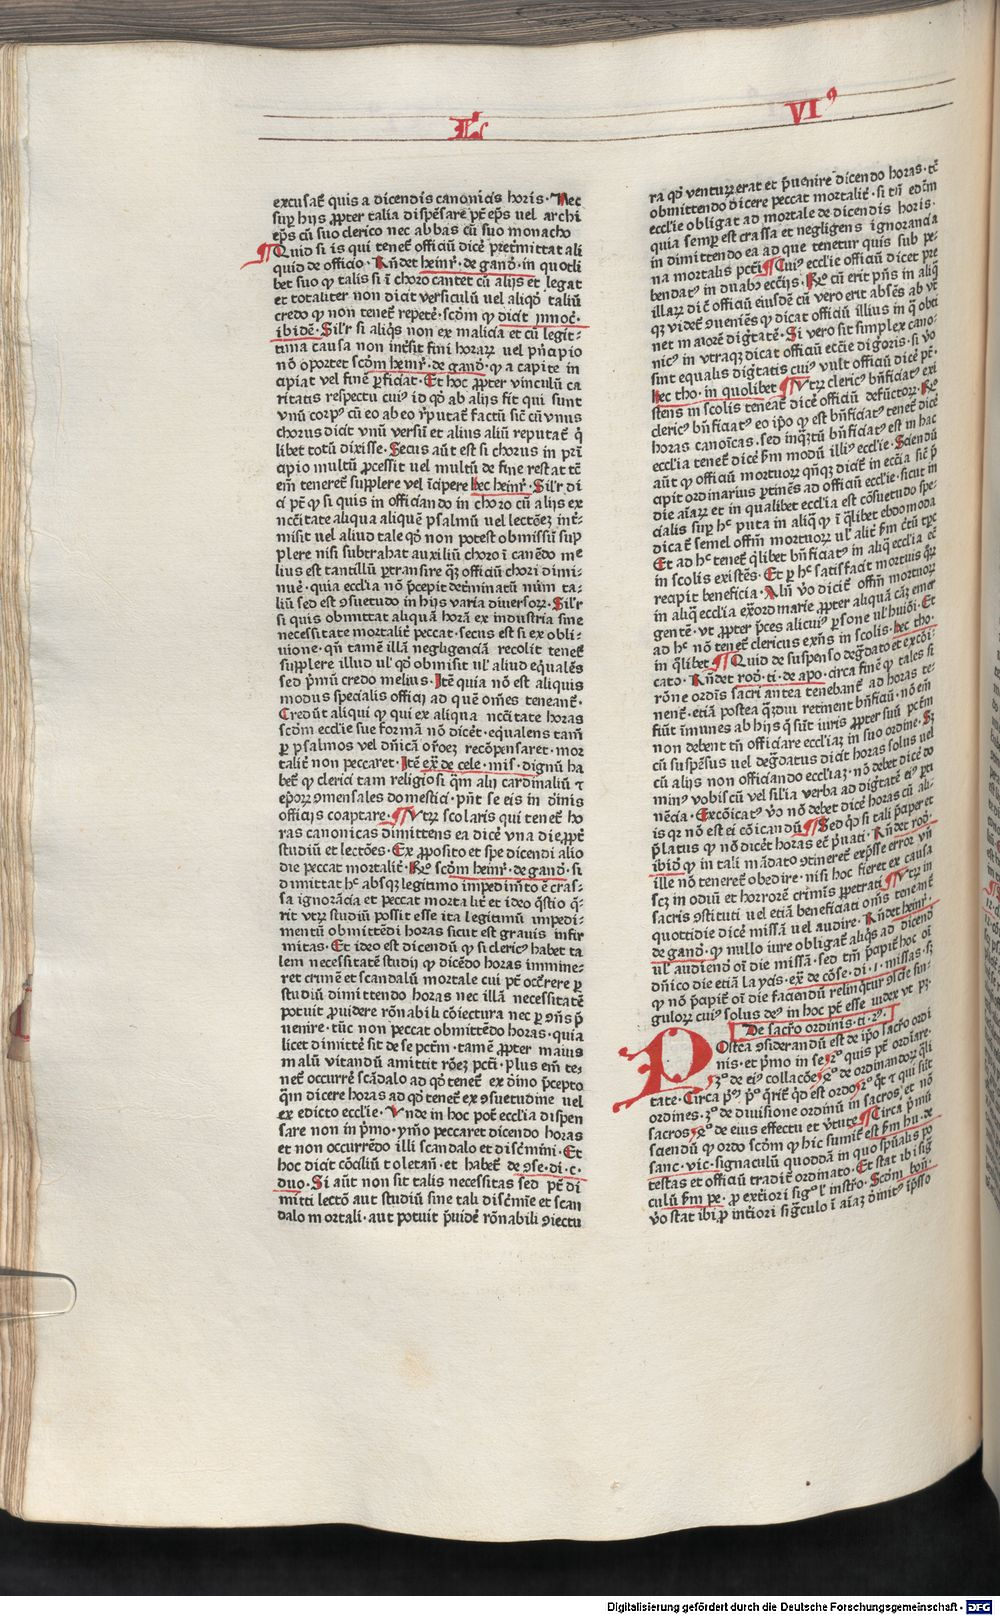 L
VI⁹
excusat̄ quis a dicendis canonicis horis · Nec
suꝑ hijs ꝓpter talia dispēsare pt̄ ep̄s uel archi
ep̄s cū suo clerico nec abbas cū suo monacho
¶Quid si is qui tenet̄ officiū dicē pretmittat ali
quid de officio · Rn̄det heinr̄ · de gand̄ · in quotli
bet suo ꝙ talis si ī choro cantet cū alijs et legat
et totaliter non dicit versiculū vel aliqđ taliū
credo ꝙ non tenet̄ repetē · scd̄m ꝙ dicit innoc̄ ·
ibidē · Sil'r si aliq̄s non ex malicia et cū legit-
tima causa non int̄sit fini horaꝝ uel pn̄cipio
nō oportet scd̄m heinr̄ · de gand̄ · ꝙ a capite in
cipiat vel finē ꝑficiat · Et hoc ꝓpter vinculū ca
ritatis respectu cui⁹ id qđ ab alijs fit qui sunt
vnū corp⁹ cū eo ab eo r̄putat̄ factū sic̄ cū vnus
chorus dicit vnū versū et alius aliū reputat̄ q̄
libet totū dixisse · Secus aūt est si chorus in prī
cipio multū ꝓcessit vel multū de fine restat tc̄
em̄ teneret̄ supplere vel īcipere hec heinr̄ · Sil'r di
ci pt̄ ꝙ si quis in officiando in choro cū alijs ex
ncc̄itate aliqua aliquē psalmū uel lectōez int̄-
misit uel aliud tale qđ non potest obmissū sup
plere nisi subtrahat auxiliū choro ī canēdo me
lius est tantillū ꝑtransire q̄ꝫ officiū chori dimi-
nuē · quia eccl̄ia nō p̄cepit det̄minatū nūm̄ ta-
liū sed est ꝯsuetudo in hijs varia diuersoꝝ · Sil'r
si quis obmittat aliquā horā ex industria sine
necessitate mortalit̄ peccat · secus est si ex obli-
uione · qn̄ tamē illā negligenciā recolit tenet̄
supplere illud ul' qđ obmisit ul' aliud eq̄ualēs
sed p̄mū credo melius · Itē quia nō est aliquis
modus specialis officij ad quē om̄es teneant̄ ·
Credūt aliqui ꝙ qui ex aliqua ncc̄itate horas
scd̄m eccl̄ie sue formā nō dicēt · equalens tam̄
ꝑ psalmos vel dn̄icā or̄oeꝫ recōpensaret · mor
talit̄ non peccaret · Itē ex̄ de cele · mis · dignū ha
bet̄ ꝙ clerici tam religiosi q̄m alij cardinaliū ⁊
ep̄oꝝ ꝯmensales domestici · pn̄t se eis in d̄inis
officijs coaptare · ¶Vtꝝ scolaris qui tenet̄ ho
ras canonicas dimittens ea dicē vna die ꝓpt̄
studiū et lectōes · Ex ꝓposito et spe dicendi alio
die peccat mortalit̄ · Re scd̄m heinr̄ · de gand̄ · si
dimittat hᶜ absqꝫ legitimo impedim̄to ē cras-
sa ignorācia et peccat mortalit̄ et ideo q̄stio q̄-
rit vetꝝ studiū possit esse ita legitimū impedi-
mentū obmittēdi horas sicut est grauis infir
mitas · Et ideo est dicendū ꝙ si cleric⁹ habet ta
lem necessitatē studij ꝙ dicēdo horas immine-
ret crimē et scandalū mortale cui pt̄ occ̄rere ꝑ
studiū dimittendo horas nec illā necessitatē
potuit ꝓuidere rōnabili cōiectura nec ꝑ ꝯn̄s p̄
uenire · tūc non peccat obmittēdo horas · quia
licet dimitte sit de se pctm̄ · tamē ꝓpter maius
malū vitandū amittit rōeꝫ pct̄i · plus em̄ te-
net̄ occurrē scādalo ad qđ tenet̄ ex d̄ino p̄cepto
q̄m dicere horas ad qđ tenet̄ ex ꝯsuetudine uel
ex edicto eccl̄ie · Vnde in hoc pot̄ eccl̄ia dispen
sare non in p̄mo · ymo peccaret dicendo horas
et non occurrēdo illi scandalo et disc̄mini · Et
hoc dicit cōciliū toletan̄ · et habet̄ de ꝯse · di · c ·
duo · Si aūt non sit talis necessitas sed pt̄ di
mitti lectō aut studiū sine tali disc̄mīe et scan
dalo mortali · aut potuit p̄uidē rōnabili ꝯiectu
ra qđ venturꝝ erat et p̄uenire dicendo horas · tc̄
obmittendo dicere peccat mortalit̄ · si tn̄ edm̄
eccl̄ie obligat ad mortale de dicendis horis ·
quia semꝑ est crassa et negligens ignorancia
in dimittendo ea ad que tenetur quis sub pe-
na mortalis pct̄i ¶Cui⁹ eccl̄ie officiū dicet pre
bendat⁹ in duab⁹ ecc̄ijs · Re cū erit p̄ns in aliq̄
illaꝝ dic̄ officiū eiusdē cū vero erit absēs ab vt̄
qꝫ videt̄ ꝯueniēs ꝙ dicat officiū illius in q̄ obti
net maiorē digtatē · Si vero sit simplex cano-
nic⁹ in vtraqꝫ dicat officiū ecc̄ie digioris · si v̄o
sint equalis digtatis cui⁹ vult officiū dicē pt̄ ·
hec tho · in quolibet ¶Vtꝝ cleric⁹ bn̄ficiat⁹ exi
stens in scolis teneat̄ dicē officiū defūctoꝝ · Re
cleric⁹ bn̄ficiat⁹ eo ip̄o ꝙ est bn̄ficiat⁹ tenet̄ dicē
horas canoīcas · sed inq̄ꝫtū bn̄ficiat⁹ est in hac
eccl̄ia tenet̄ dicē ẜm modū illi⁹ eccl̄ie · Sciendū
aūt ꝙ officiū mortuoꝝ qn̄qꝫ dicit̄ in ecc̄ia sic̄ p̄
cipit ordinarius ꝑtinēs ad officiū eccl̄ie · sicut in
die aīaꝝ et in qualibet eccl̄ia est cōsuetudo spe-
cialis suꝑ hᶜ puta in aliq̄ ꝙ ī q̄libet ebdomoda
dicat̄ semel offm̄ mortuoꝝ ul' alit̄ ẜm c̄tū tp̄c
Et ad hᶜ tenet̄ q̄libet bn̄ficiat⁹ in aliq̄ eccl̄ia ec̄
in scolis existēs · Et ꝑ hᶜ satisfacit mortuis q̄ꝝ
recipit beneficia · Alit̄ v̄o dicit̄ offm̄ mortuoꝝ
in aliq̄ eccl̄ia ex̄ordinarie ꝓpter aliquā cāꝫ emer
gentē · vt ꝓpter p̄ces alicui⁹ ꝑsone ul' hui⁹di · Et
ad hᶜ nō tenet̄ clericus exn̄s in scolis · hec tho ·
in q̄libet ¶Quid de suspenso deg̊dato et excōi-
cato · Rn̄det rođ · ti · de apo · circa finē ꝙ tales si
rōne ordīs sacri antea tenebant̄ ad horas te-
nent̄ · etiā postea q̄ꝫdiu retinent bn̄ficiū · nō em̄
fiūt īmunes ab hijs q̄ sūt iuris ꝓpter suū pctm̄
non debent tn̄ officiare eccl̄iaꝫ in suo ordine · Sꝫ
cū suspēsus vel deg̊datus dicit horas solus uel
cū alijs non officiando eccl̄iaꝫ · nō debet dicē do
min⁹ vobiscū vel sil̄ia verba ad digtatē ei⁹ ꝑti
nēcia · Excōicat⁹ v̄o nō debet dicē horas cū ali-
is qꝫ nō est ei cōicandū ¶Sed qđ si tali p̄aper et
p̄latus ꝙ nō dicet̄ horas ec̄ p̄uati · Rn̄det rođ ·
ibiđ ꝙ in tali mādato ꝯtineret̄ exp̄sse error vn̄
ille nō teneret̄ obedire · nisi hoc fieret ex causa
scꝫ in odiū et horrorē crimīs ꝑpetrati ¶Vtꝝ in
sacris ꝯstituti uel etiā beneficiati om̄s teneant̄
quottidie dicē missā uel audire · Rn̄det heinr̄ ·
de gand̄ · ꝙ nullo iure obligat̄ aliq̄s ad dicend̄
ul' audiend̄ oī die missā · sed tm̄ p̄apit̄ hoc oī
dn̄ico die etiā laycis · ex̄ de cōse · di · 1 · missas · sꝫ
ꝙ nō p̄apit̄ oī die faciendū relinq̄tur ꝯscīe sin-
guloꝝ cui⁹ solus de⁹ in hoc pt̄ esse iudex vt pꝫ ·
De sacro ordinis · ti · 2⁹ ·
Postea ꝯsiderandū est de ip̄o sacr̄o ordi
nis · et p̄mo in se 2° quis pt̄ ordīare ·
3° de ei⁹ collacōe 4° de ordinandoꝝ q̄li
tate · Circa p̄⁹ p̄° q̄rit̄ qđ est ordo 2° q̄t ⁊ qui sūt
ordines · 3° de diuisione ordinū in sacros et nō
sacros 4° de eius effectu et v̄tute ¶Circa p̄mū
sciendū ꝙ ordo scd̄m ꝙ hic sumit̄ est ẜm hu · de
sanc · vic · signaculū quoddā in quo spūalis po
testas et officiū tradit̄ ordinato · Et stat ibi sig̊
culū ẜm pe · ꝓ ext̄iori sig° l' instr̄o · Scd̄m bon̄ ·
v̄o stat ibi ꝓ int̄iori sig̊culo ī aīaꝫ om̄it⁹ ip̄sso
Digitalisierung gefördert durch die Deutsche Forschungsgemeinschaft - DFG